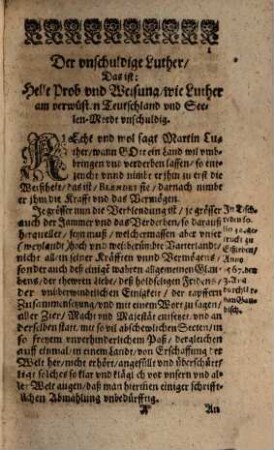 Der vnschuldige Luther/
Das ist:
Helle Prob vnd Weisung/wie Luther
am verwüst.n Teutschland vnd See-
len-Morde vnschuldig.
REcht vnd wol sagt Martin Lu-
ther/wann GOtt ein Land wil vmb-
bringen vnd verderben lassen/ so ent-
zeucht vnnd nimbt er jhm zu erst die
Weißheit/das ist/ BLENDET sie/ darnach nimbt
er jhm die Krafft vnd das Vermögen.
Je grösser nun die Verblendung ist/je grösser
auch der Jammer vnnd das Verderben/ so darauß
herquellet/ seyn muß/ welchermassen aber vnser
(weyland) hoch vnd weitberümbt Vatterlande/
nicht allein seiner Kräfften vnnd Vermögens/
sonder auch deß einigē wahren allgemeinen Glau-
bens/der thewren Liebe/deß holdseligen Fridens/
der vnüberwindlichen Einigkeit/ der tapffern
Zusammensetzung/vnd mit einem Wort zu sagen/
aller Zier/ Macht vnd Majestät entsetzt/ vnd an
derselben statt/mit so vil abschewlichen Secten/in
so freyem vnverhinderlichem Paß/ dergleichen
auff einmal/ in einem Landt/ von Erschaffung der
Welt her/nicht erhört/angefüllt vnd überschüttet/
ligt solches so klar vnd klägl ch vor vnsern vnd al-
ler Welt augen/daß man hierinen einiger schrifft-
lichen Abmahlung vnbedürfftig.
A
An
In Tisch-
reden
zu
Eißleben/
Anno